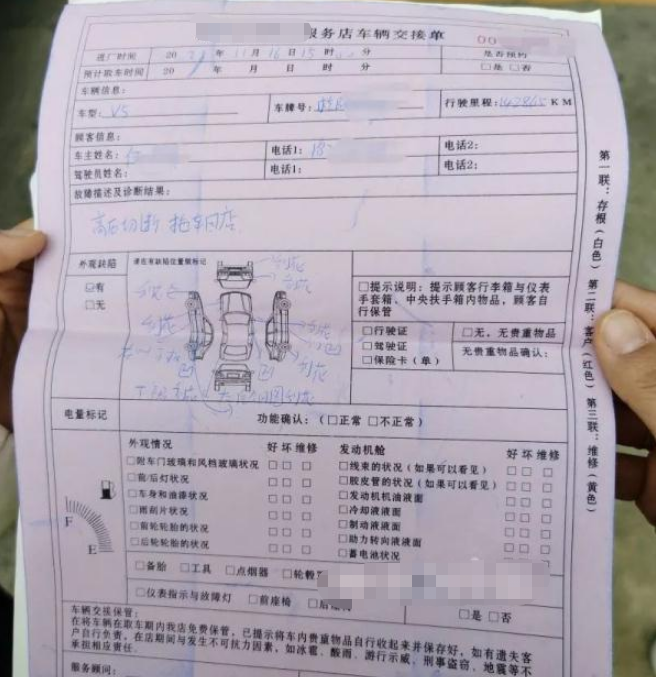 服务店车辆交接单
00
进厂时间 20 年 11 月 16 日 15 时 分 是否预约
预计取车时间 20 年 月 日 时 分 □是 □否
车辆信息:
车型: V5 车牌号: 行驶里程: KM
顾客信息:
车主姓名: 电话1: 18 电话2:
驾驶员姓名: 电话1: 电话2:
故障描述及诊断结果:
高压切断 拖车回店
外观缺陷 请在有缺陷位置做标记
□有
□无
划花
□提示说明: 提示顾客行李箱与仪表
手套箱、中央扶手箱内物品, 顾客自
行保管
□行驶证 □无, 无贵重物品
□驾驶证 无贵重物品确认:
□保险卡(单)
电量标记 功能确认: (□正常 □不正常)
F
E
外观情况 好 坏 维修 发动机舱 好 坏 维修
□附车门玻璃和风档玻璃状况 □□□ □线束的状况(如果可以看见) □□□
□前/后灯状况 □□□ □胶皮管的状况(如果可以看见) □□□
□车身和油漆状况 □□□ □发动机机油液面 □□□
□雨刮片状况 □□□ □冷却液液面 □□□
□前轮轮胎的状况 □□□ □制动液液面 □□□
□后轮轮胎的状况 □□□ □助力转向液液面 □□□
□蓄电池状况 □□□
□备胎 □工具 □点烟器 □轮毂
□仪表指示与故障灯 □前座椅 □是 □否
车辆交接保管:
在将车辆在取车期内我店免费保管, 已提示将车内贵重物品自行收起来并保存好, 如有遗失客
户自行负责, 在店期间与发生不可抗力因素, 如冰雹、酸雨、游行示威、刑事盗窃、地震等不
承担相应责任.
服务顾问:
第一联: 存根(白色) 第二联: 客户(红色) 第三联: 维修(黄色)